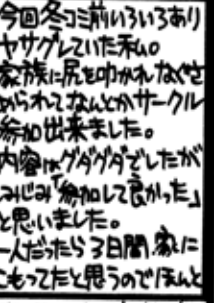 今回冬コミ前いろいろあり
ヤサグレていた私。
家族に尻を叩かれなぐさ
められてなんとかサークル
参加出来ました。
内容はグダグダでしたが
しみじみ「参加して良かった」
と思いました。
一人だったら3日間、家に
こもってたと思うのでほんと